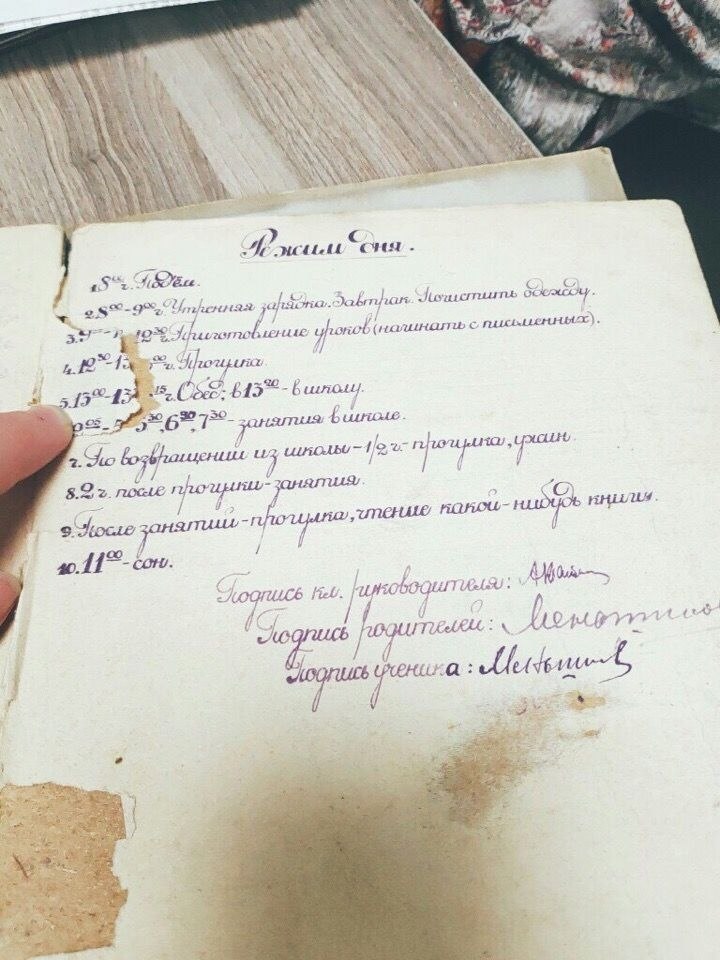 Режим дня.
1. 8⁰⁰ ч. Подъём.
2. 8⁰⁰-9⁰⁰ч. Утренняя зарядка. Завтрак. Почистить одежду.
3. 12³⁰ч. Приготовление уроков (начинать с письменных).
4. 12³⁰- ч. Прогулка.
5. 13⁰⁰-13¹⁵ ч. Обед; в 13²⁰- в школу.
6³⁰, 7³⁰- занятия в школе.
7. По возвращении из школы-1/2 ч.- прогулка, ужин.
8. 2 ч. после прогулки-занятия.
9. После занятий-прогулка, чтение какой-нибудь книги.
10. 11⁰⁰- сон.
Подпись кл. руководителя:
Подпись родителей:
Подпись ученика: